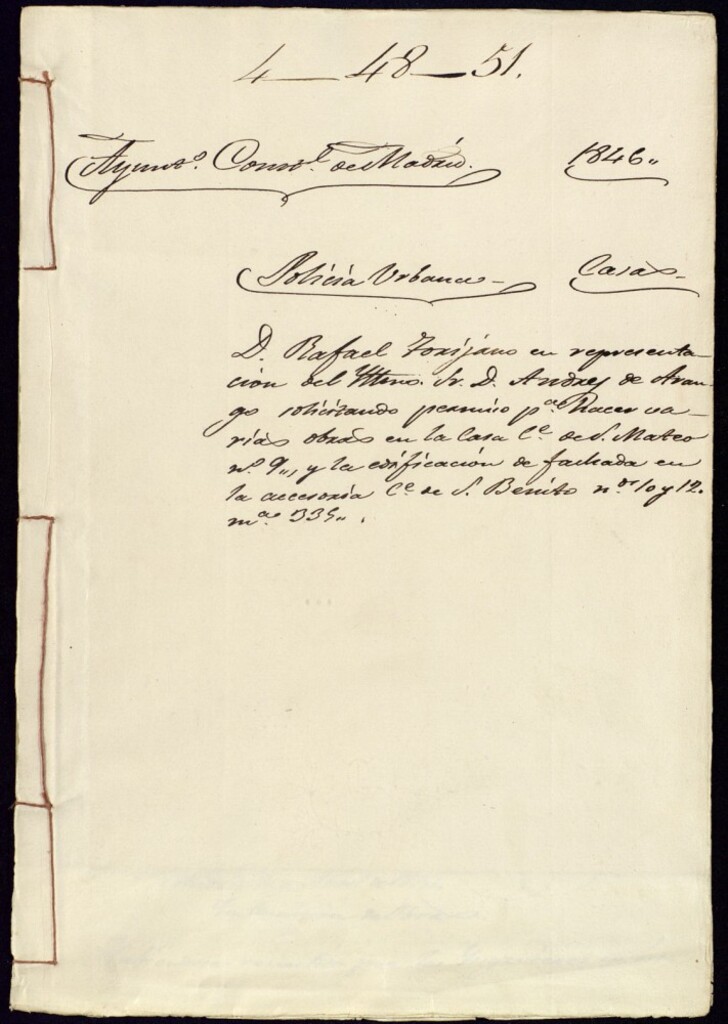 4—48—51.
Ayunto. Consl. de Madrid. 1846.,
Policía Urbana— Casas—
D. Rafael Torijano en representa-
cion del Yttmo. Sr. D. Andres de Aran-
go solicitando permiso pa. hacer va-
rias obras en la Casa Ce. de S. Mateo
no. 9,, y la edificación de fachada en
la accesoria Ce. de S. Benito nos. 10 y 12.
ma. 335,,.